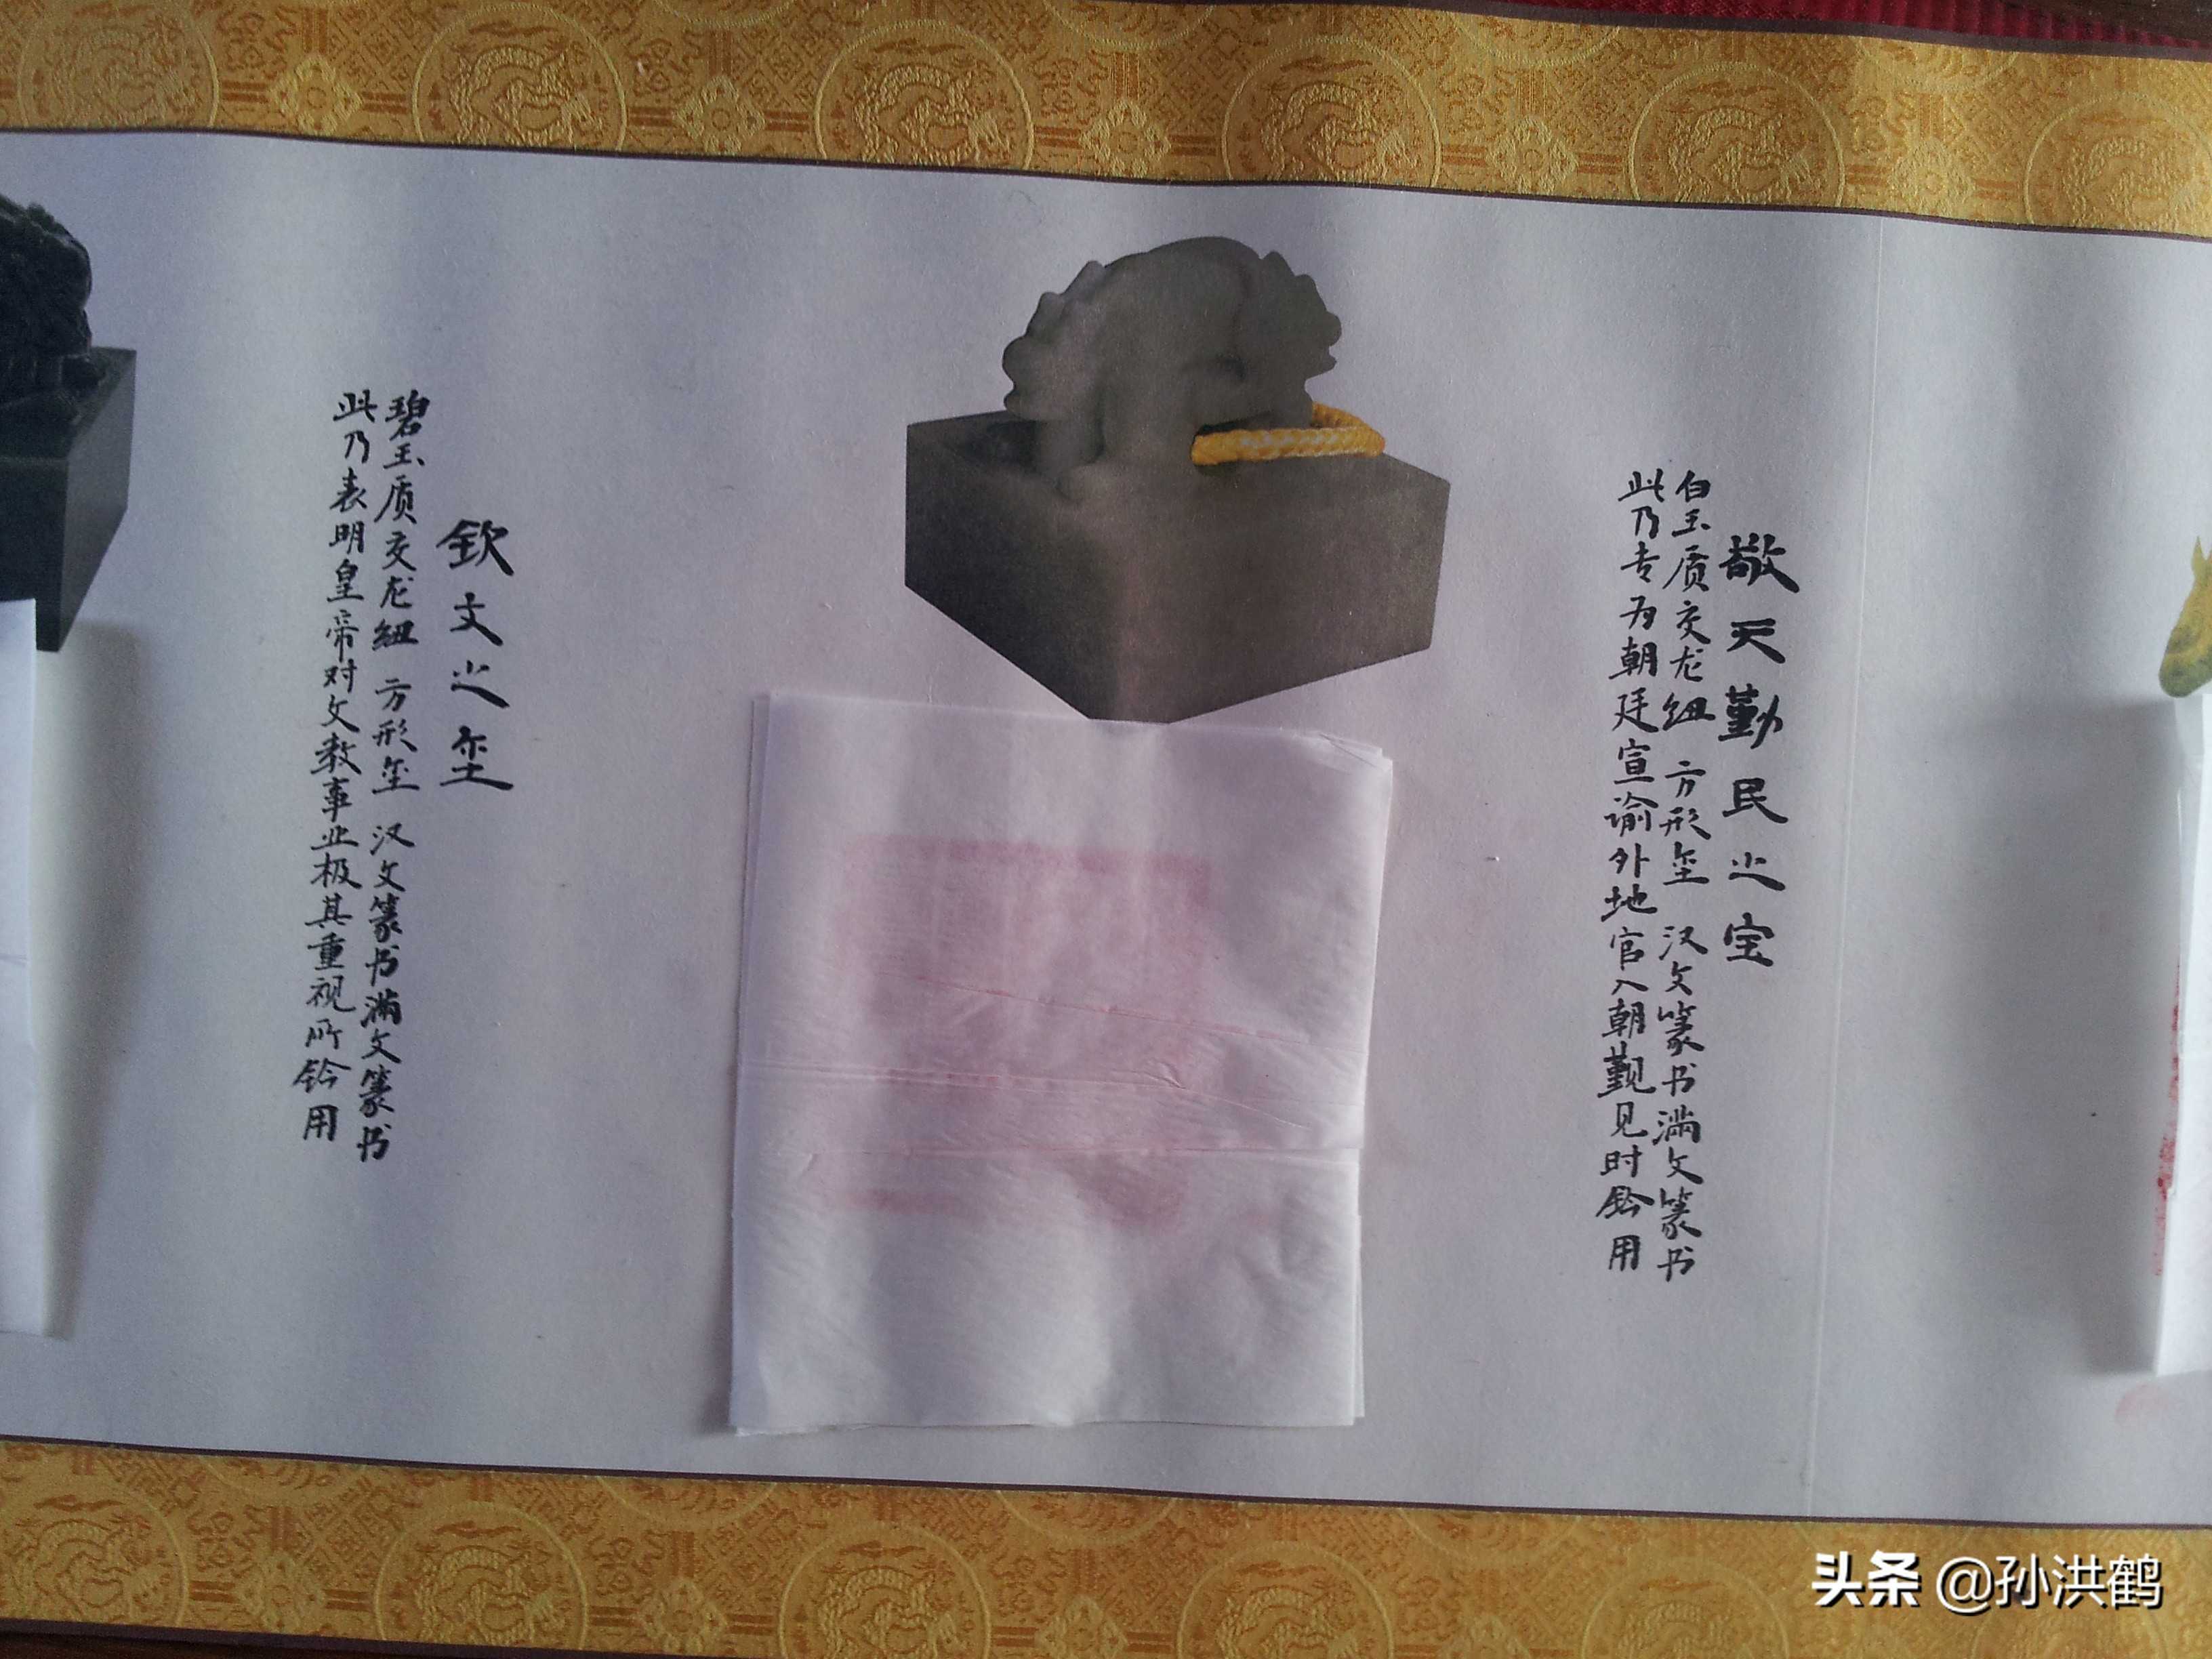 敬天勤民之宝
白玉质交龙纽 方形玺 汉文篆书满文篆书
此乃专为朝廷宣谕外地官入朝觐见时钤用
钦文之玺
碧玉质交龙纽 方形玺 汉文篆书满文篆书
此乃表明皇帝对文教事业极其重视所钤用
头条 @孙洪鹤